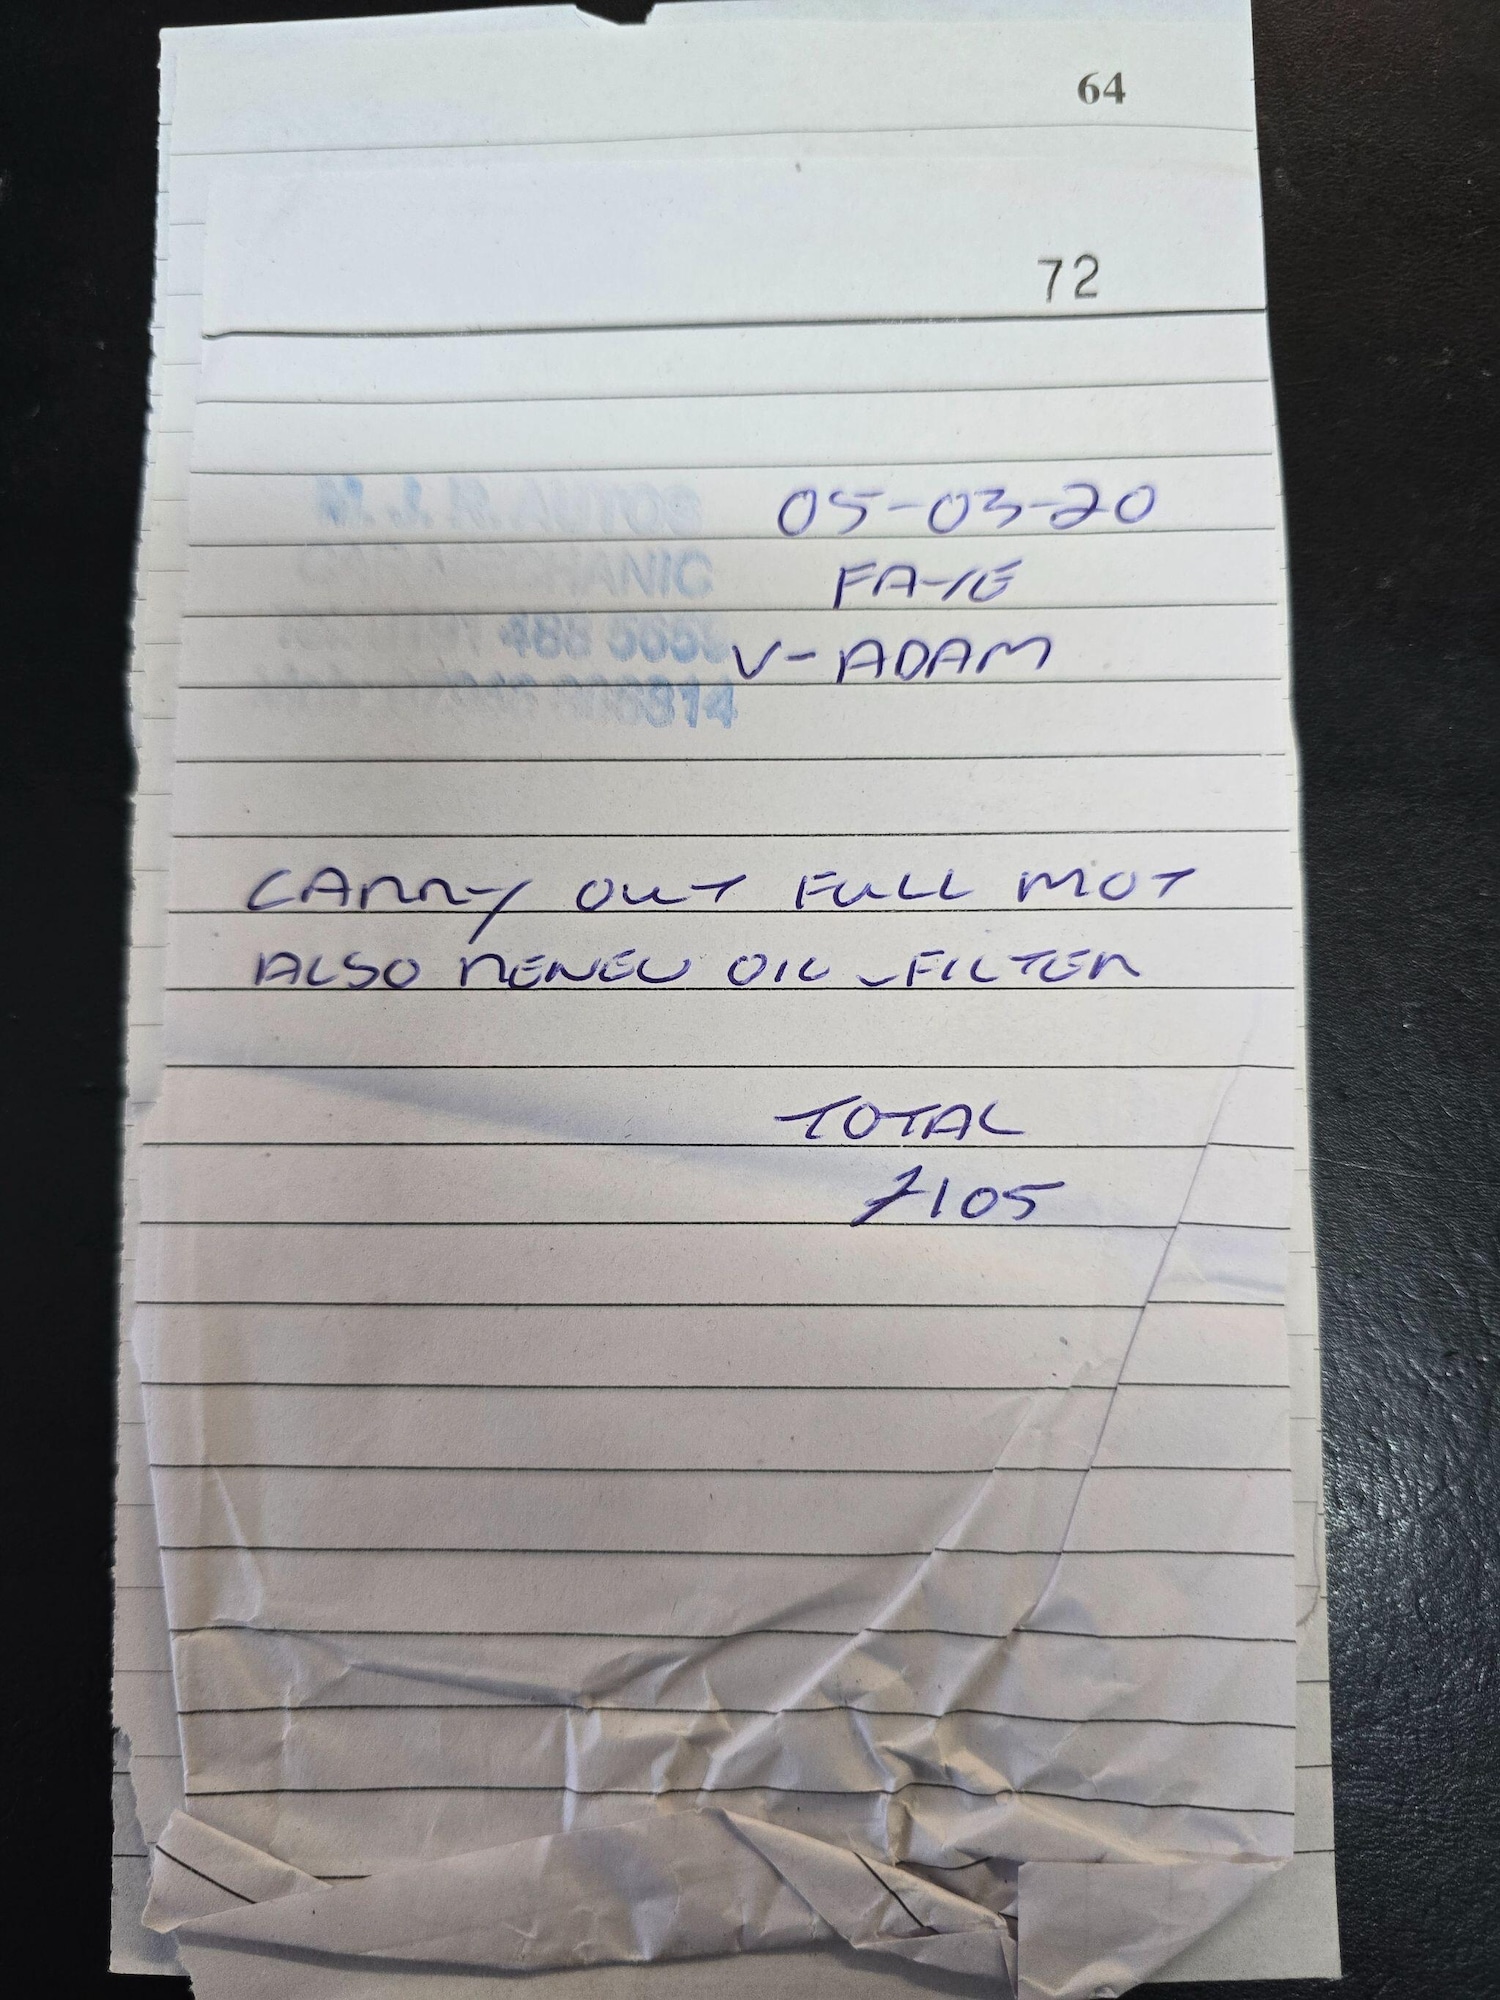 64
72
M. J. R. AUTOS
CAR MECHANIC
0191 488 5653
814
05-03-20
FAYE
V-ADAM
CARRY OUT FULL MOT
ALSO RENEW OIL - FILTER
TOTAL
£105